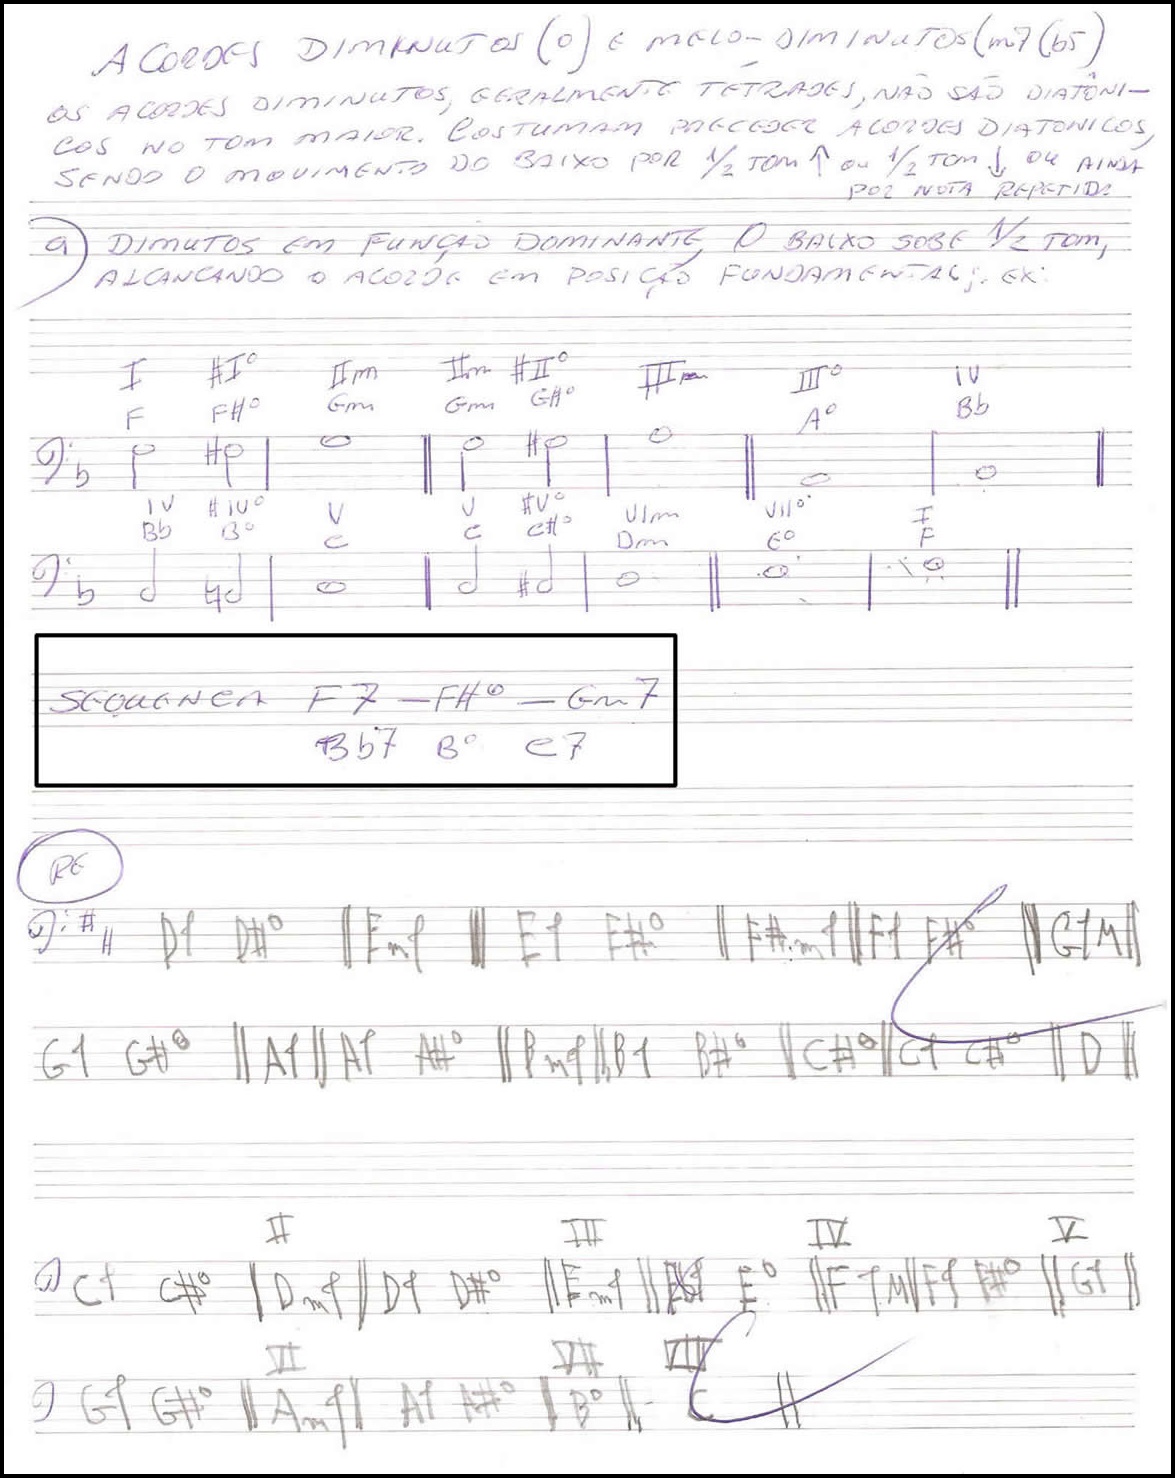 ACORDES DIMINUTOS (o) E MEIO-DIMINUTOS (m7(b5)
OS ACORDES DIMINUTOS, GERALMENTE TÉTRADES, NÃO SÃO DIATÔNI-
COS NO TOM MAIOR. COSTUMAM PRECEDER ACORDES DIATONICOS,
SENDO O MOVIMENTO DO BAIXO POR 1/2 TOM ↑ OU 1/2 TOM ↓, OU AINDA
POR NOTA REPETIDA
a) DIMUTOS EM FUNÇÃO DOMINANTE, O BAIXO SOBE 1/2 TOM,
ALCANCANDO O ACORDE EM POSIÇÃO FUNDAMENTAL; EX:
I #I° IIm IIm #II° IIIm III° IV
F F#° Gm Gm G#° A° Bb
IV #IV° V V #V° VIm VII° I
Bb B° C C C#° Dm E° F
SEQUENCA F7 — F#° — Gm7
Bb7 B° C7
RE
D7 D#° Em7 E7 E#° F#m7 F7 F#° G7M
G7 G#° A7 A7 A#° Bm7 B7 B#° C#° C7 C#° D
II III IV V
C7 C#° Dm7 D7 D#° Em7 E° F7M F7 F#° G7
VI VII VIII
G7 G#° Am7 A7 A#° B° C